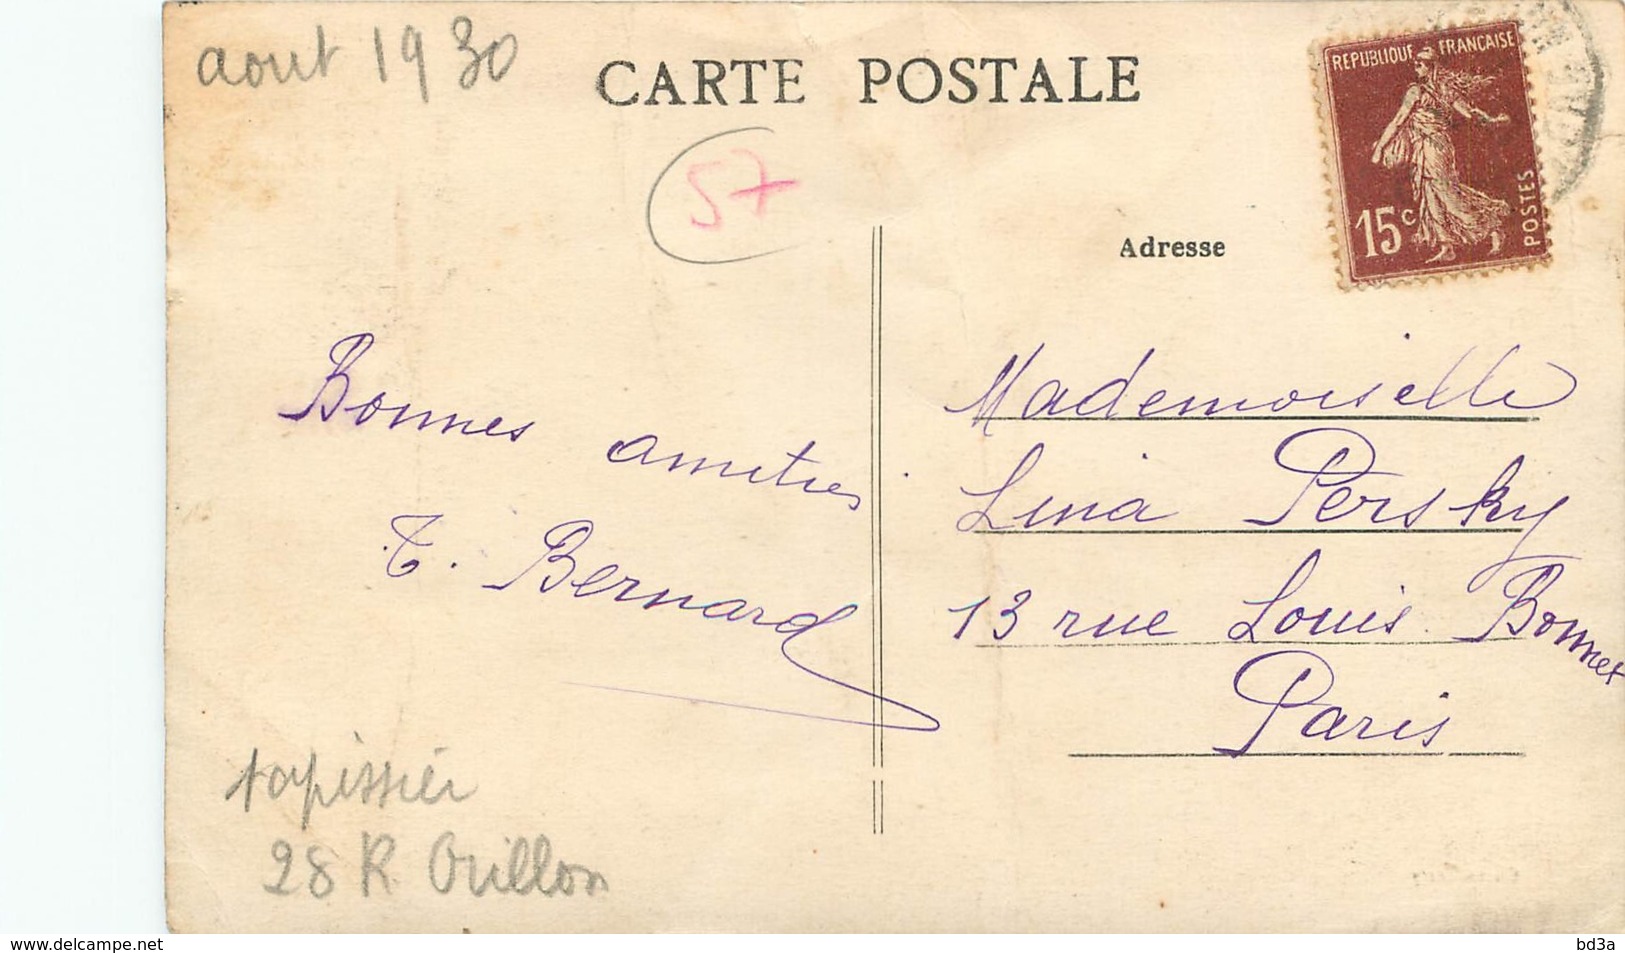 aout 1930
CARTE POSTALE
REPUBLIQUE FRANÇAISE
15c
POSTES
57
Adresse
Bonnes amities
T. Bernard
Mademoiselle
Lina Persky
13 rue Louis Bonnet
Paris
tapissier
28 R Orillon
www.delcampe.net
bd3a